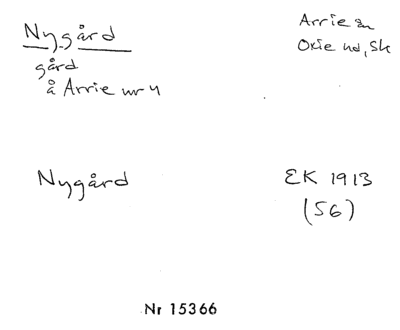 Nygård
Arrie sn
Oxie hd, Sk
gård
å Arrie nr 4
Nygård
EK 1913
(56)
Nr 15366